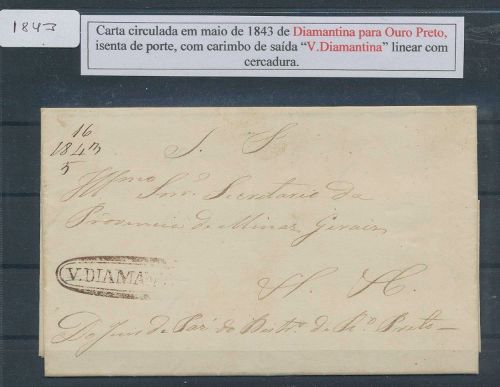 1843
Carta circulada em maio de 1843 de Diamantina para Ouro Preto,
isenta de porte, com carimbo de saída “V.Diamantina” linear com
cercadura.
16
1843
5
S. S.
Illmo Snr. Secretario da
Provincia de Minas Geraes
V. DIAMAN
Do Juis de Paz do de Rio Preto